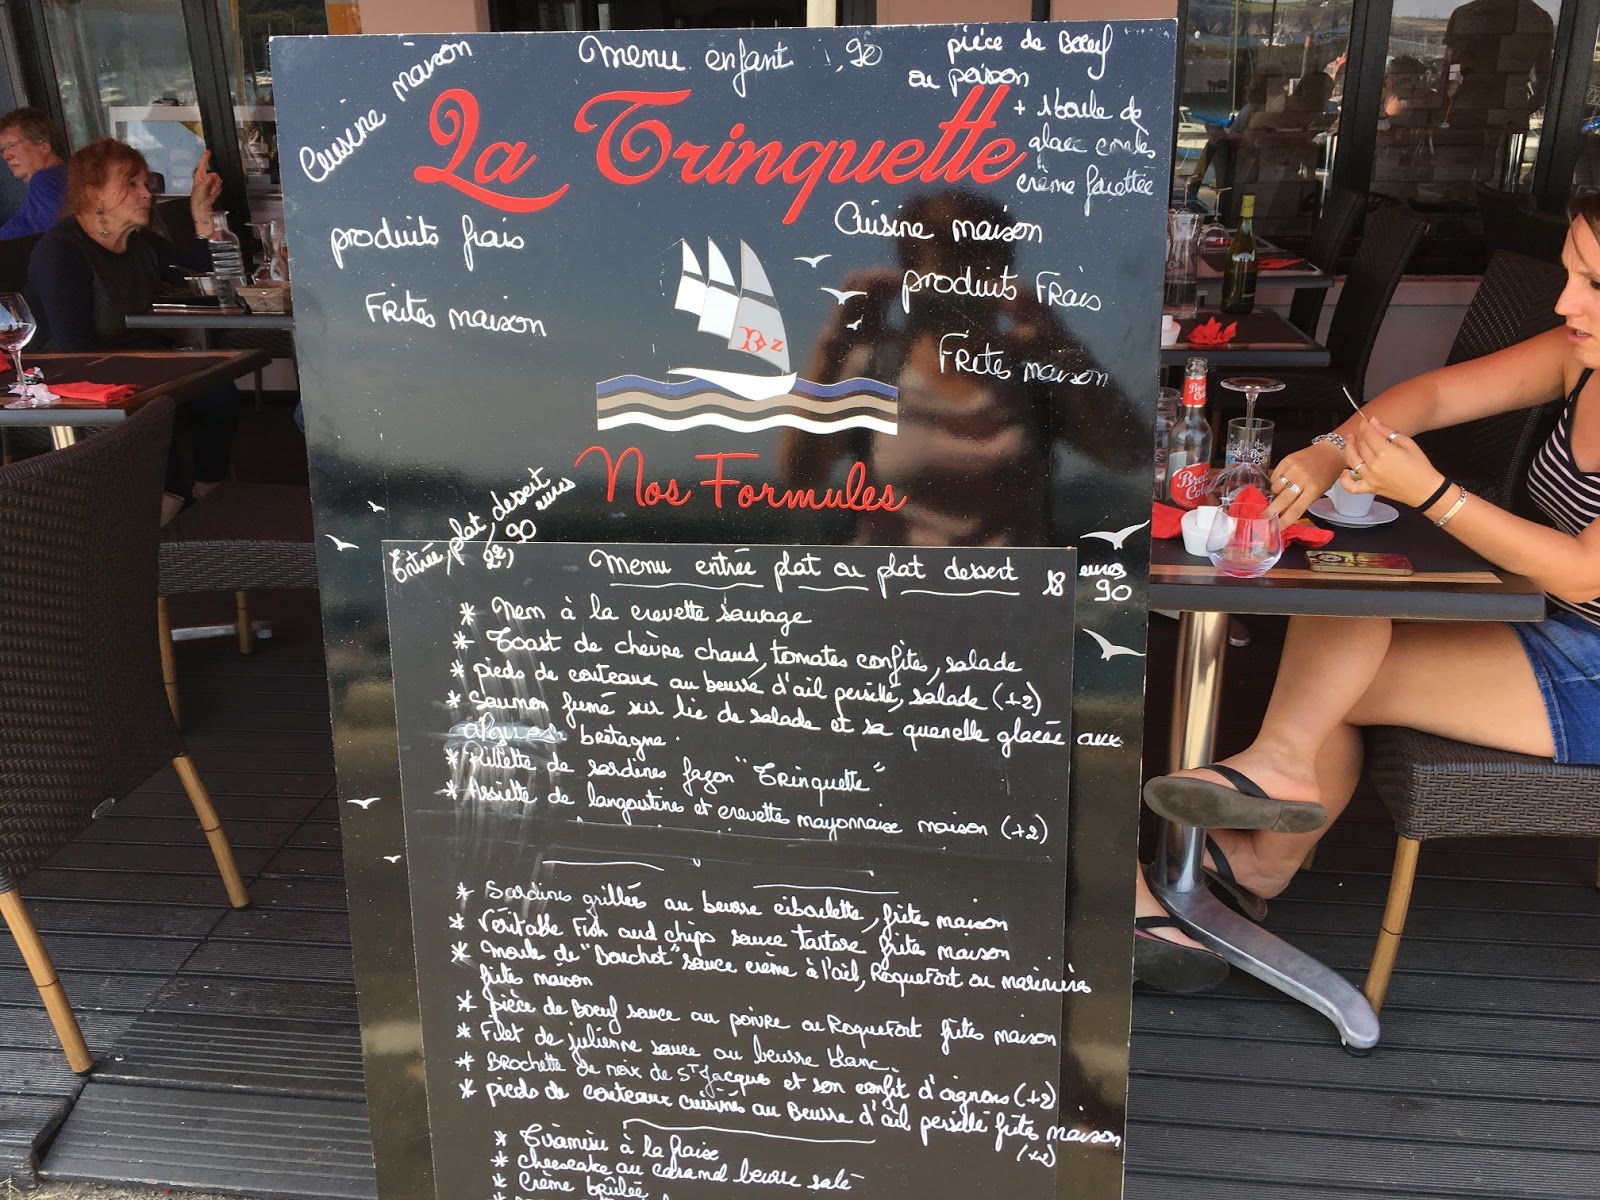 Cuisine maison
Menu enfant ,90
pièce de Boeuf
ou poisson
+ 1 boule de
glace
crème
La Trinquette
produits frais
Frites maison
Cuisine maison
produits Frais
Frites maison
Bz
Nos Formules
Entrée, plat, dessert
22, 90 euros
Menu entrée plat ou plat dessert 18 euros 90
* Nem à la crevette sauvage
* Toast de chèvre chaud, tomates confites, salade
* pieds de couteaux au beurre d'ail persillé, salade (+2)
* Saumon fumé sur lie de salade et sa quenelle glacée aux
algues bretagne.
* Rillette de sardines façon "Trinquette"
* Assiette de langoustines et crevettes mayonnaise maison (+2)
* Sardines grillées au beurre ciboulette, frite maison
* Véritable Fish and chips sauce tartare frite maison
* Moule de "Bouchot" sauce crème à l'ail, Roquefort ou marinières
frites maison
* pièce de Boeuf sauce au poivre ou Roquefort frites maison
* Filet de julienne sauce au beurre blanc.
* Brochette de noix de St Jacques et son confit d'oignons (+2)
* pieds de couteaux cuisinés au Beurre d'ail persillé frites maison
(+2)
* Tiramisu à la fraise
* cheesecake au caramel beurre salé
* Crème brûlée